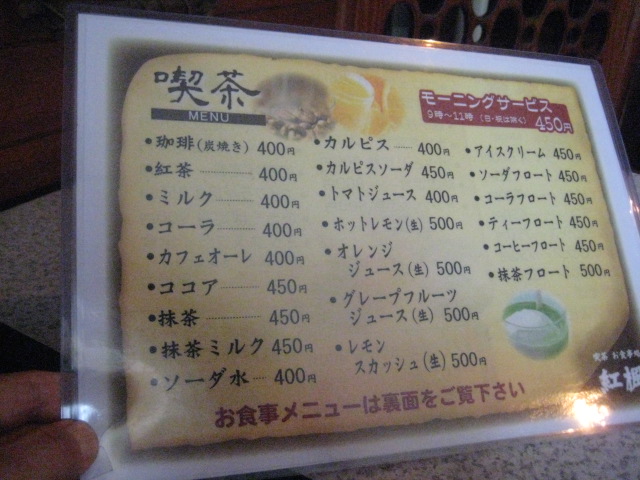 喫茶
MENU
モーニングサービス
9時〜11時 (日・祝は除く) 450円
•珈琲(炭焼き) 400円
•紅茶 400円
•ミルク 400円
•コーラ 400円
•カフェオーレ 400円
•ココア 450円
•抹茶 450円
•抹茶ミルク 450円
•ソーダ水 400円
•カルピス 400円
•カルピスソーダ 450円
•トマトジュース 400円
•ホットレモン(生) 500円
•オレンジ
ジュース(生) 500円
•グレープフルーツ
ジュース(生) 500円
•レモン
スカッシュ(生) 500円
•アイスクリーム 450円
•ソーダフロート 450円
•コーラフロート 450円
•ティーフロート 450円
•コーヒーフロート 450円
•抹茶フロート 500円
お食事メニューは裏面をご覧下さい
喫茶 お食事
紅